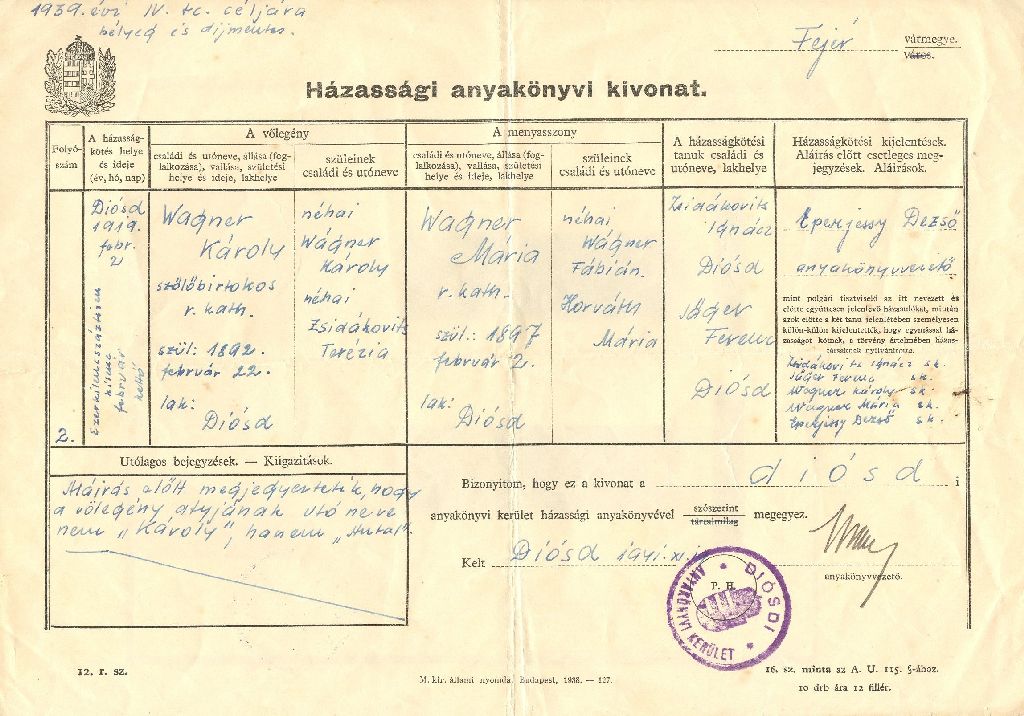 1939. évi IV. tc. céljára
bélyeg és díjmentes.
Fejér vármegye.
Város.
Házassági anyakönyvi kivonat.
Folyó-
szám
A házasság-
kötés helye
és ideje
(év, hó, nap)
A vőlegény
családi és utóneve, állása (fog-
lalkozása), vallása, születési
helye és ideje, lakhelye
szüleinek
családi és utóneve
A menyasszony
családi és utóneve, állása (fog-
lalkozása), vallása, születési
helye és ideje, lakhelye
szüleinek
családi és utóneve
A házasságkötési
tanuk családi és
utóneve, lakhelye
Házasságkötési kijelentések.
Aláírás előtt esetleges meg-
jegyzések. Aláírások.
2.
Diósd
1919.
febr.
2
Ezerkilencszáztizen
kilenc
február
kettő
Wagner
Károly
szőlőbirtokos
r. kath.
szül: 1892.
február 22.
lak:
Diósd
néhai
Wágner
Károly
néhai
Zsidákovits
Terézia
Wagner
Mária
r. kath.
szül: 1897
február 2.
lak:
Diósd
néhai
Wágner
Fábián.
Horváth
Mária
Zsidákovits
Ignácz
Diósd
Jäger
Ferenc
Diósd
Eperjessy Dezső
anyakönyvvezető
mint polgári tisztviselő az itt nevezett és
előtte együttesen jelenlévő házasulókat, miután
azok előtte a két tanu jelenlétében személyesen
külön-külön kijelentették, hogy egymással há-
zasságot kötnek, a törvény értelmében házas-
társaknak nyilvánította.
Zsidákovits Ignácz sk.
Jäger Ferenc sk.
Wagner Károly sk.
Wagner Mária sk.
Eperjessy Dezső sk.
Utólagos bejegyzések. — Kiigazítások.
Aláírás előtt megjegyeztetik, hogy
a vőlegény atyjának utóneve
nem „Károly", hanem „Antal".
Bizonyítom, hogy ez a kivonat a diósd i
anyakönyvi kerület házassági anyakönyvével szószerint megegyez.
tartalmilag
Kelt Diósd 1941. XI.
P. H.
anyakönyvvezető.
DIÓSDI
ANYAKÖNYVI KERÜLET
12. r. sz.
M. kir. állami nyomda, Budapest, 1938. — 127.
16. sz. minta az A. U. 115. §-ához.
10 drb ára 12 fillér.